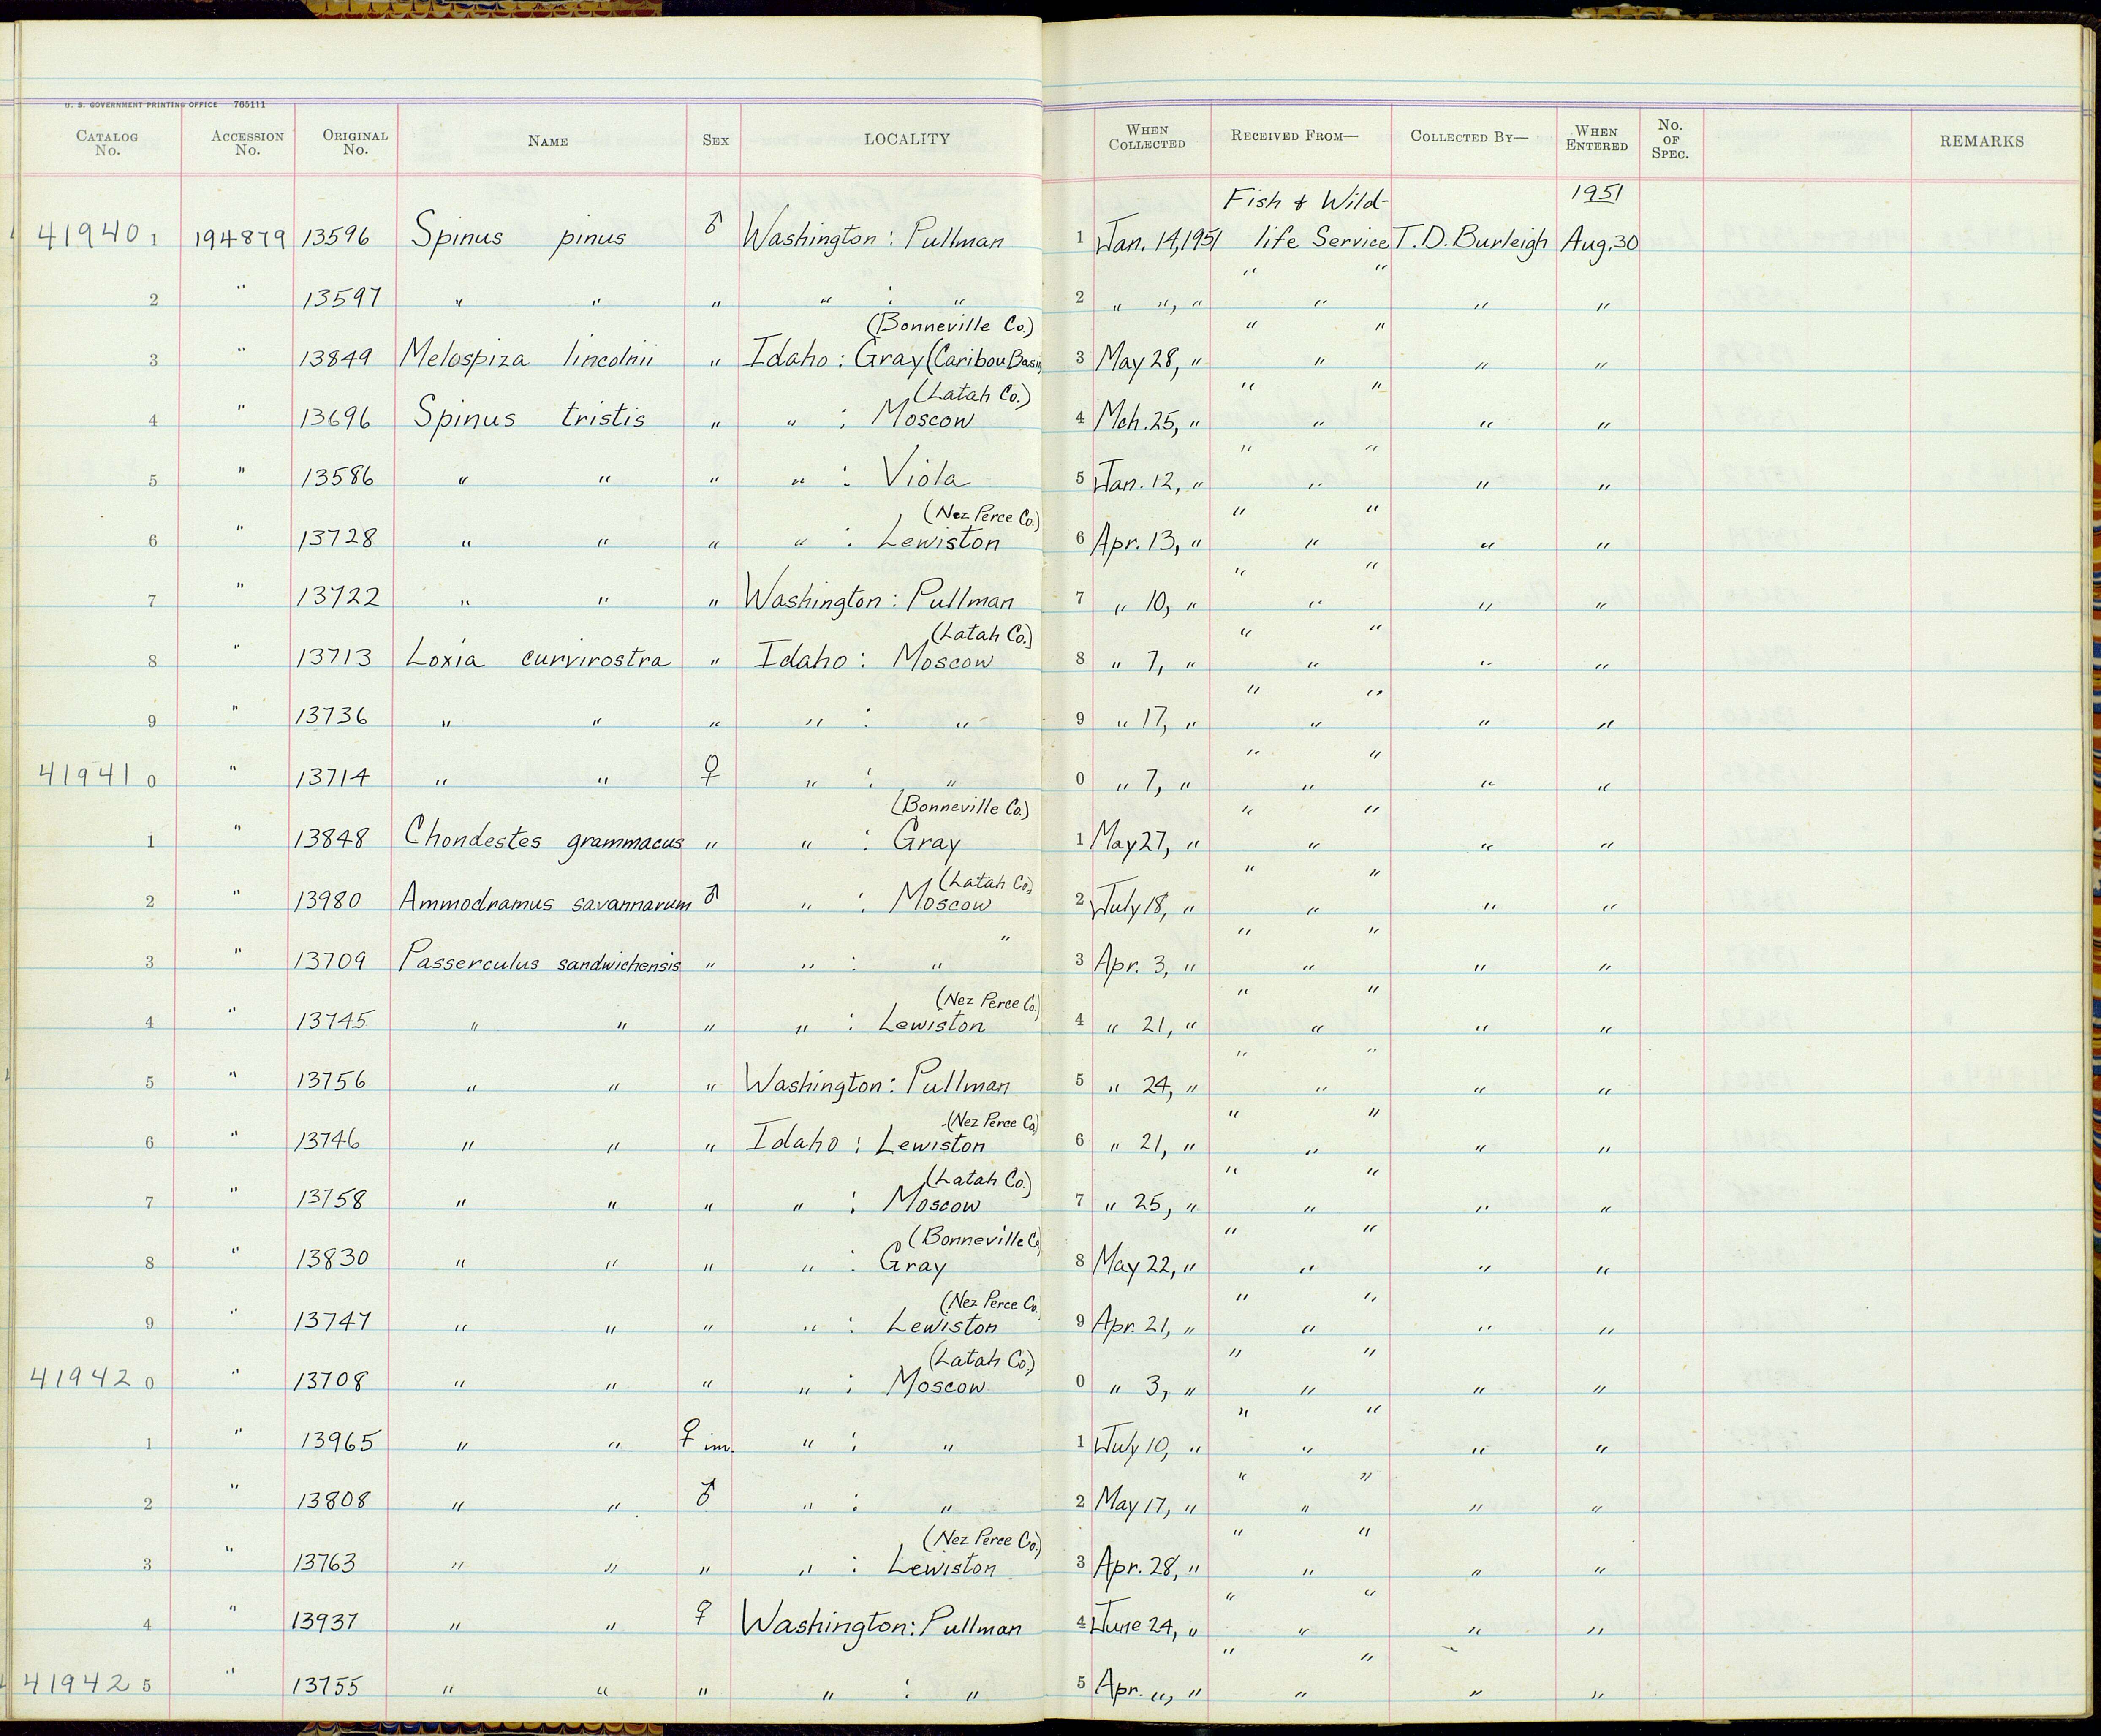 U. S. GOVERNMENT PRINTING OFFICE 765111
CATALOG No. ACCESSION No. ORIGINAL No. NAME SEX LOCALITY WHEN COLLECTED RECEIVED FROM— COLLECTED BY— WHEN ENTERED No. OF SPEC. REMARKS
Fish & Wild- 1951
41940 1 194879 13596 Spinus pinus ♂ Washington : Pullman 1 Jan. 14, 1951 life Service T.D. Burleigh Aug. 30
" "
2 " 13597 " " " " : " 2 " ", " " " "
(Bonneville Co.) " "
3 " 13849 Melospiza lincolnii " Idaho : Gray (Caribou Basin) 3 May 28, " " " "
(Latah Co.) " "
4 " 13696 Spinus tristis " " : Moscow 4 Mch. 25, " " " "
" "
5 " 13586 " " " " : Viola 5 Jan. 12, " " " "
(Nez Perce Co.) " "
6 " 13728 " " " " : Lewiston 6 Apr. 13, " " " "
" "
7 " 13722 " " " Washington : Pullman 7 " 10, " " " "
(Latah Co.) " "
8 " 13713 Loxia curvirostra " Idaho : Moscow 8 " 7, " " " "
" "
9 " 13736 " " " " : " 9 " 17, " " " "
" "
41941 0 " 13714 " " ♀ " : " 0 " 7, " " " "
(Bonneville Co.) " "
1 " 13848 Chondestes grammacus " " : Gray 1 May 27, " " " "
(Latah Co.) " "
2 " 13980 Ammodramus savannarum ♂ " : Moscow 2 July 18, " " " "
" " "
3 " 13709 Passerculus sandwichensis " " : " 3 Apr. 3, " " " "
(Nez Perce Co.) " "
4 " 13745 " " " " : Lewiston 4 " 21, " " " "
" "
5 " 13756 " " " Washington : Pullman 5 " 24, " " " "
(Nez Perce Co.) " "
6 " 13746 " " " Idaho : Lewiston 6 " 21, " " " "
(Latah Co.) " "
7 " 13758 " " " " : Moscow 7 " 25, " " " "
(Bonneville Co.) " "
8 " 13830 " " " " : Gray 8 May 22, " " " "
(Nez Perce Co. " "
9 " 13747 " " " " : Lewiston 9 Apr. 21, " " " "
(Latah Co.) " "
41942 0 " 13708 " " " " : Moscow 0 " 3, " " " "
" "
1 " 13965 " " ♀ im. " : " 1 July 10, " " " "
" "
2 " 13808 " " ♂ " : " 2 May 17, " " " "
(Nez Perce Co.) " "
3 " 13763 " " " " : Lewiston 3 Apr. 28, " " " "
" "
4 " 13937 " " ♀ Washington : Pullman 4 June 24, " " " "
" "
41942 5 " 13755 " " " " : " 5 Apr. ", " " " "